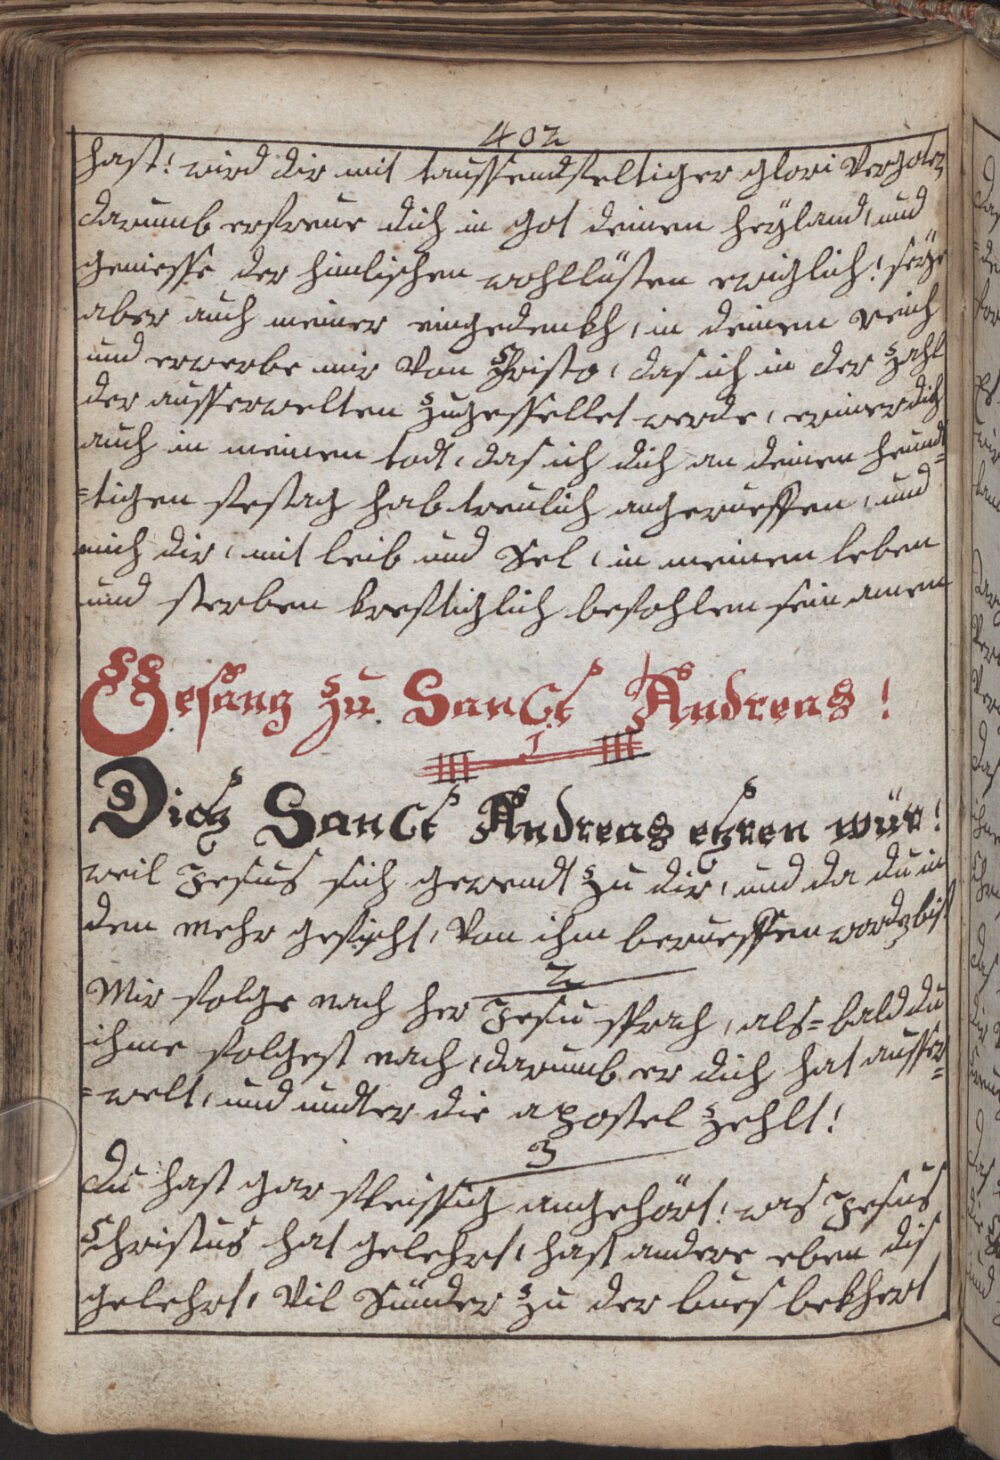 402
hast! wird dir mit taussendfeltiger glori vergolten,
darumb erfreue dich in got deinen heÿland, und
geniesse der himlischen wohllüsten ewiglich! seÿe
aber auch meiner eingedenkh, in deinem reich
und erwerbe mir von Christo, das ich in der zahl
der ausserwelten zugesellet werde, eriner dich
auch in meinem todt, das ich dich an deinen heund=
=tigen festag hab treulich angerueffen, und
mich dir, mit leib und Sel, in meinem leben
und sterben krefftiglich befohlen sein amen
Gesang zu Sanct Andreas!
1
Dich Sanct Andreas ehren wür!
weil Jesus sich gewendt zu dir, und da du in
dem mehr gefischt, von ihm berueffen worden bist
2
Mir folge nach her Jesu sprach, als=bald du
ihme folgest nach, darumb er dich hat ausser=
=welt, und undter die apostel zehlt!
3
Du hast gar fleissig angehört! was Jesus
Christus hat gelehrt, hast andere eben dis
gelehrt, vil Sünder zu der bues bekhert